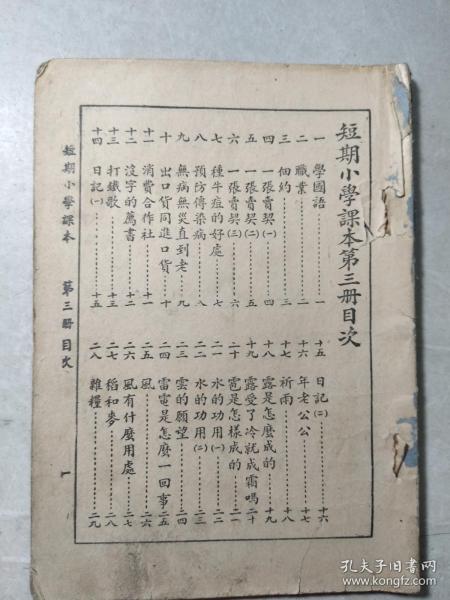 短期小學課本第三冊目次
一 學國語……一
二 職業……二
三 佃約……三
四 一張賣契(一)……四
五 一張賣契(二)……五
六 一張賣契(三)……六
七 種牛痘的好處……七
八 預防傳染病……八
九 無病無災直到老……九
十 出口貨同進口貨……十
十一 消費合作社……十一
十二 沒字的薦書……十二
十三 打鐵歌……十三
十四 日記(一)……十五
十五 日記(二)……十六
十六 年老公公……十七
十七 祈雨……十八
十八 露是怎麼成的……十九
十九 露受了冷就成霜嗎……二十
二十 雹是怎樣成的……二一
二一 水的功用(一)……二二
二二 水的功用(二)……二三
二三 雲的願望……二四
二四 雷電是怎麼一回事……二五
二五 風……二六
二六 風有什麼用處……二七
二七 稻和麥……二八
二八 雜糧……二九
短期小學課本 第三冊 目次 一
孔夫子旧书网
www.kongfz.com